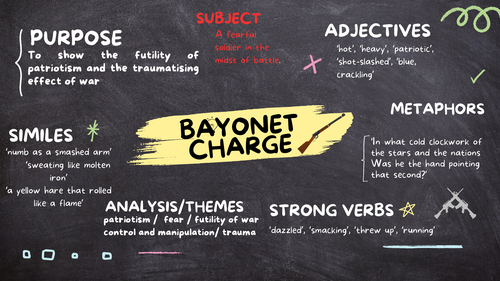 PURPOSE
To show the futility of
patriotism and the traumatising
effect of war
SUBJECT
A fearful
soldier in the
midst of battle.
ADJECTIVES
'hot', 'heavy', 'patriotic',
'shot-slashed', 'blue,
crackling'
METAPHORS
'In what cold clockwork of
the stars and the nations
Was he the hand pointing
that second?'
SIMILES
'numb as a smashed arm'
'sweating like molten
iron'
'a yellow hare that rolled
like a flame'
BAYONET
CHARGE
ANALYSIS/THEMES
patriotism / fear / futility of war
control and manipulation/ trauma
STRONG VERBS
'dazzled', 'smacking', 'threw up', 'running'